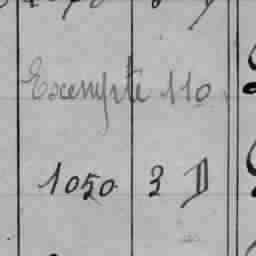 Exempte 110
1050 3 D